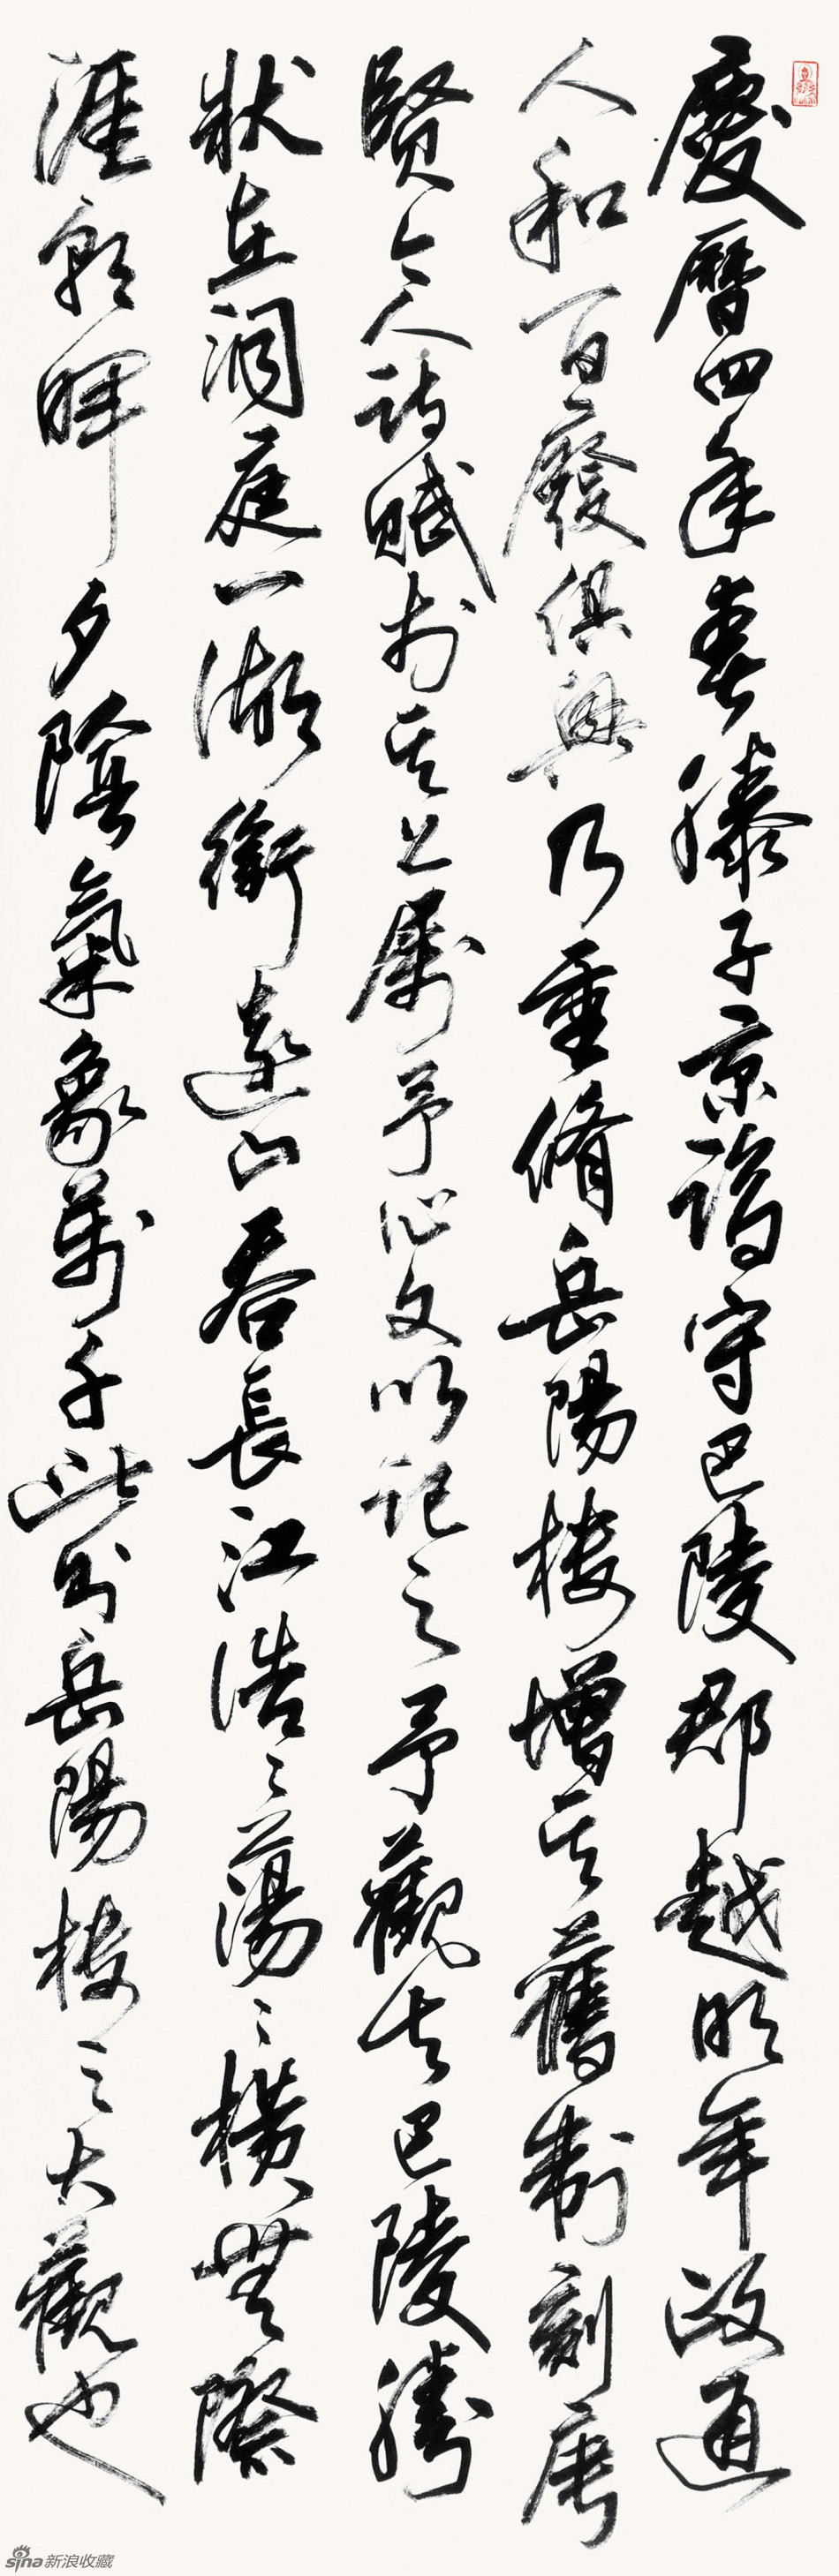 慶曆四年春滕子京謫守巴陵郡越明年政通
人和百廢俱興乃重脩岳陽樓增其舊制刻唐
賢今人詩賦於其上屬予作文以記之予觀夫巴陵勝
狀在洞庭一湖銜遠山吞長江浩〻蕩〻橫無際
涯朝暉夕陰氣象萬千此則岳陽樓之大觀也
sina新浪收藏